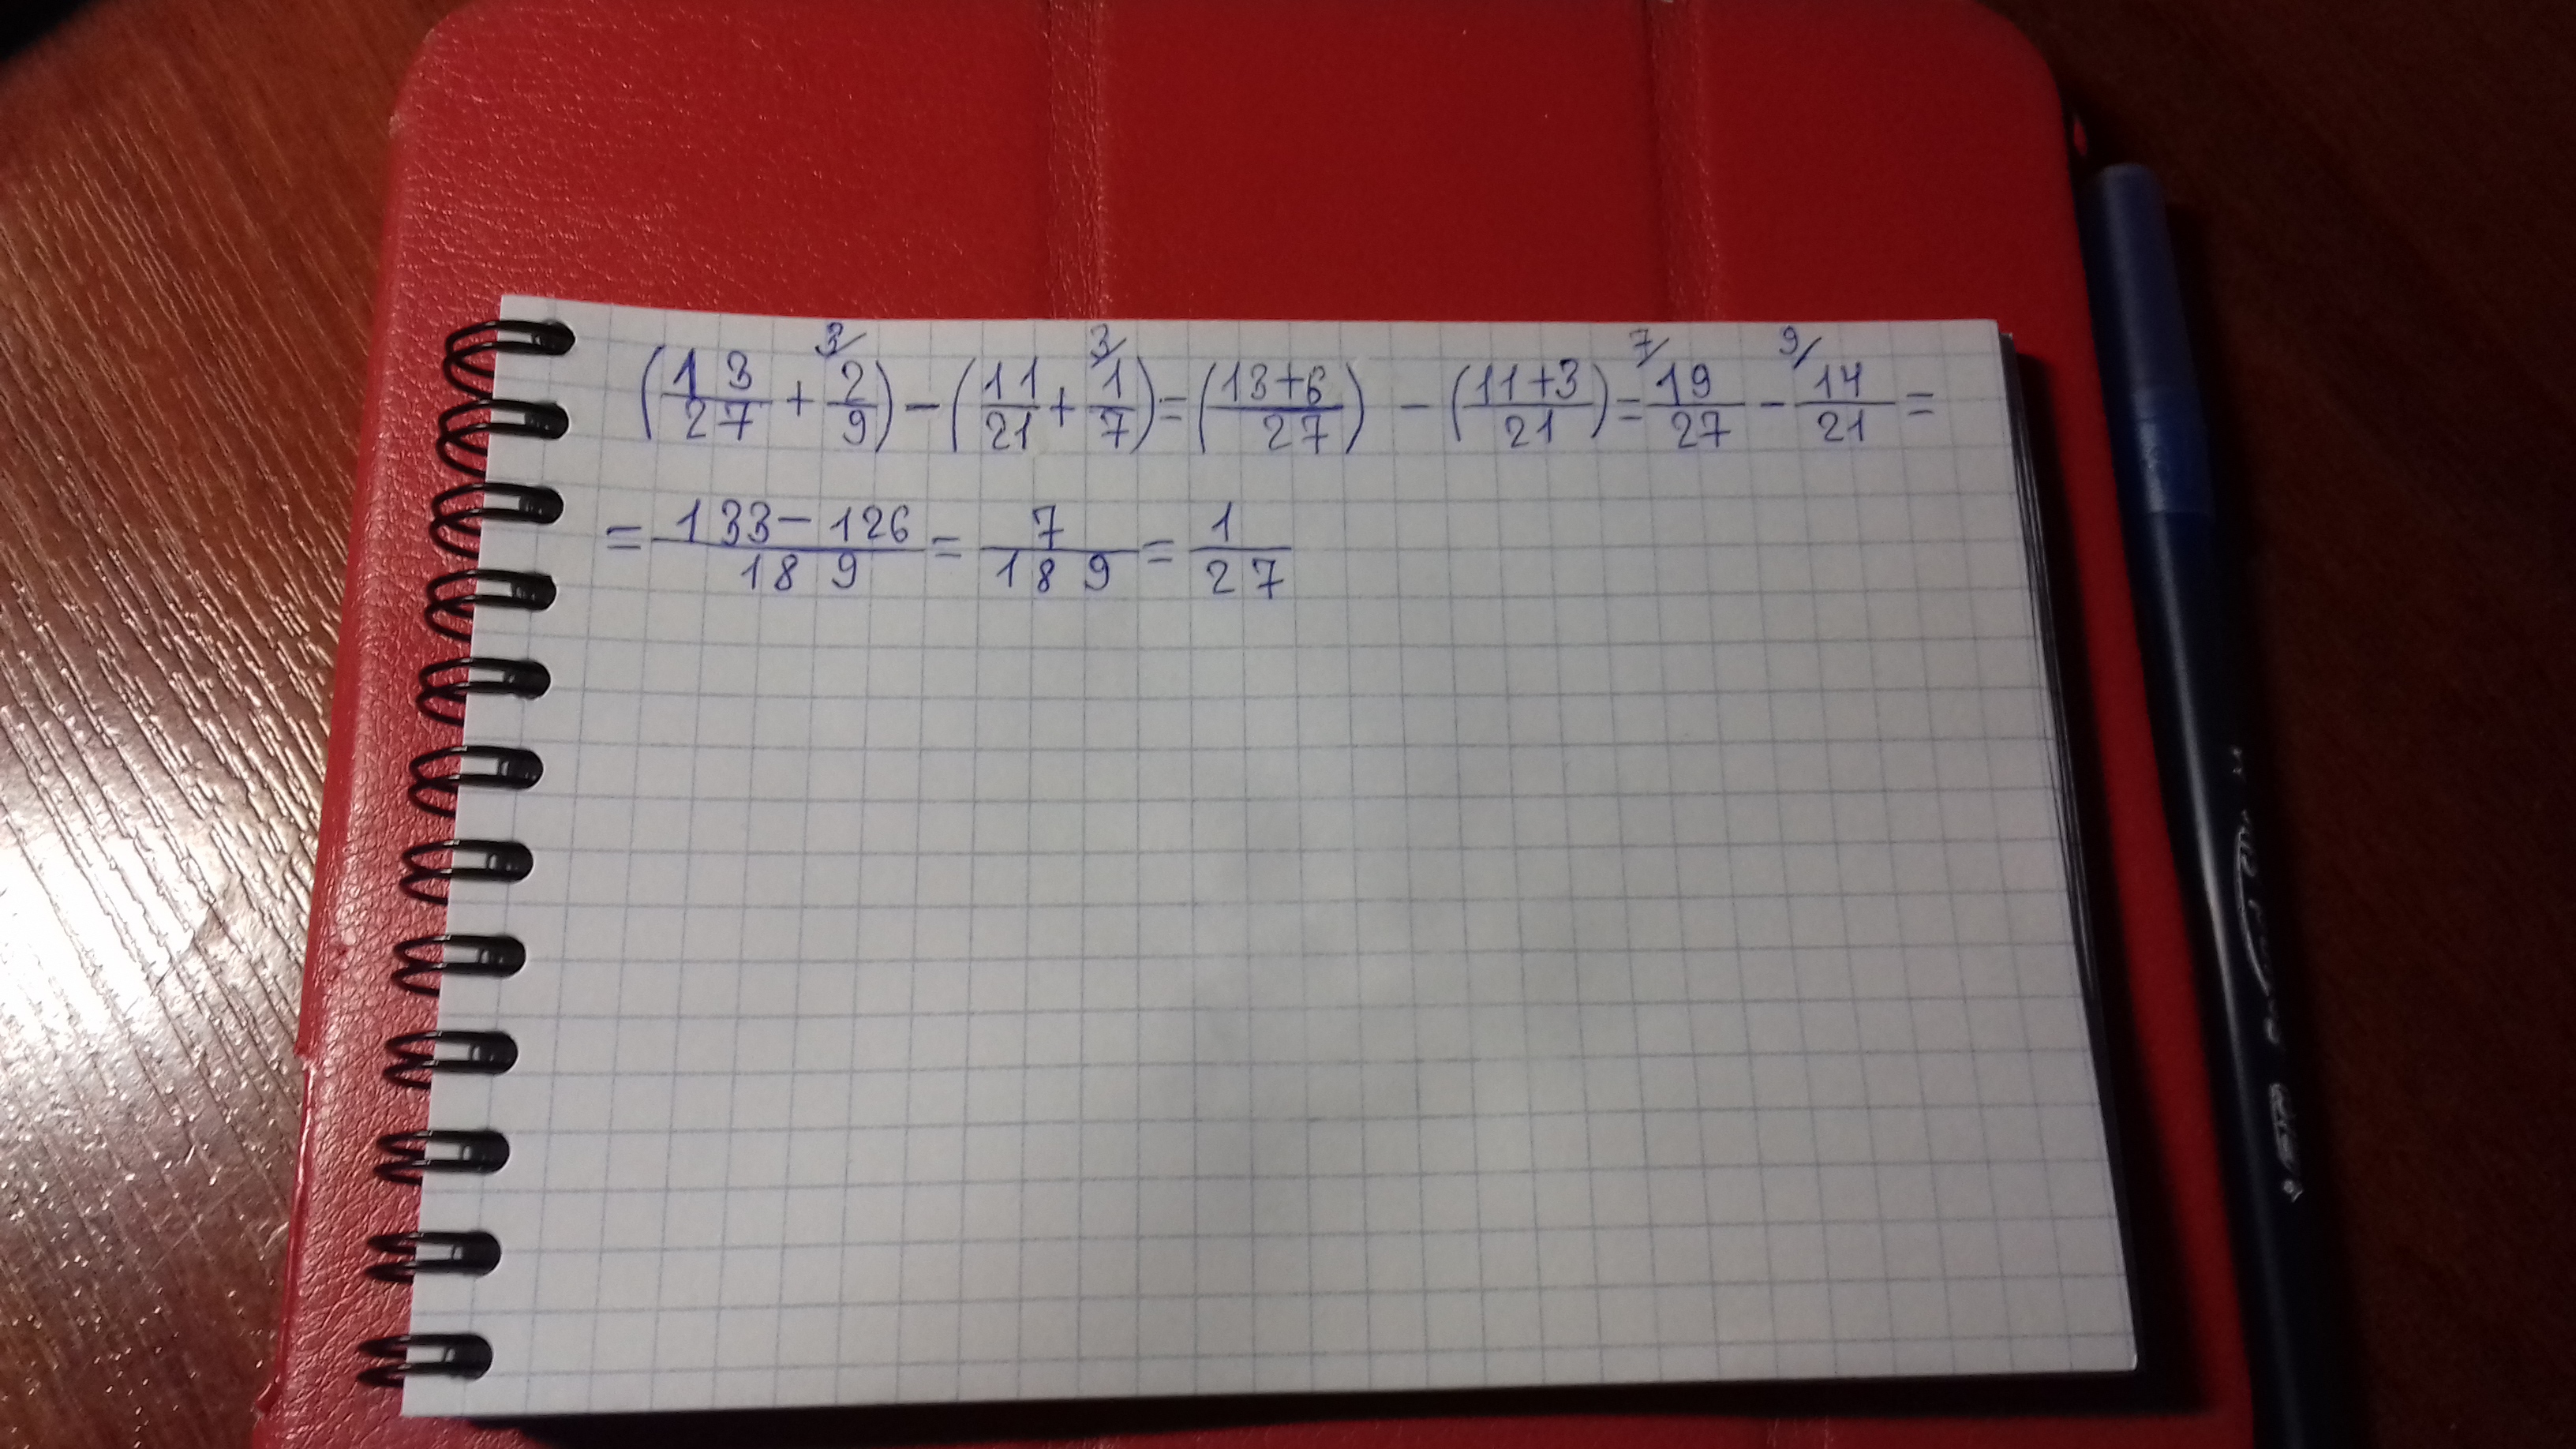 (13/27 + 3/ 2/9) - (11/21 + 3/ 1/7) = (13+6/27) - (11+3/21) = 7/ 19/27 - 9/ 14/21 =
= 133-126/189 = 7/189 = 1/27
BIC